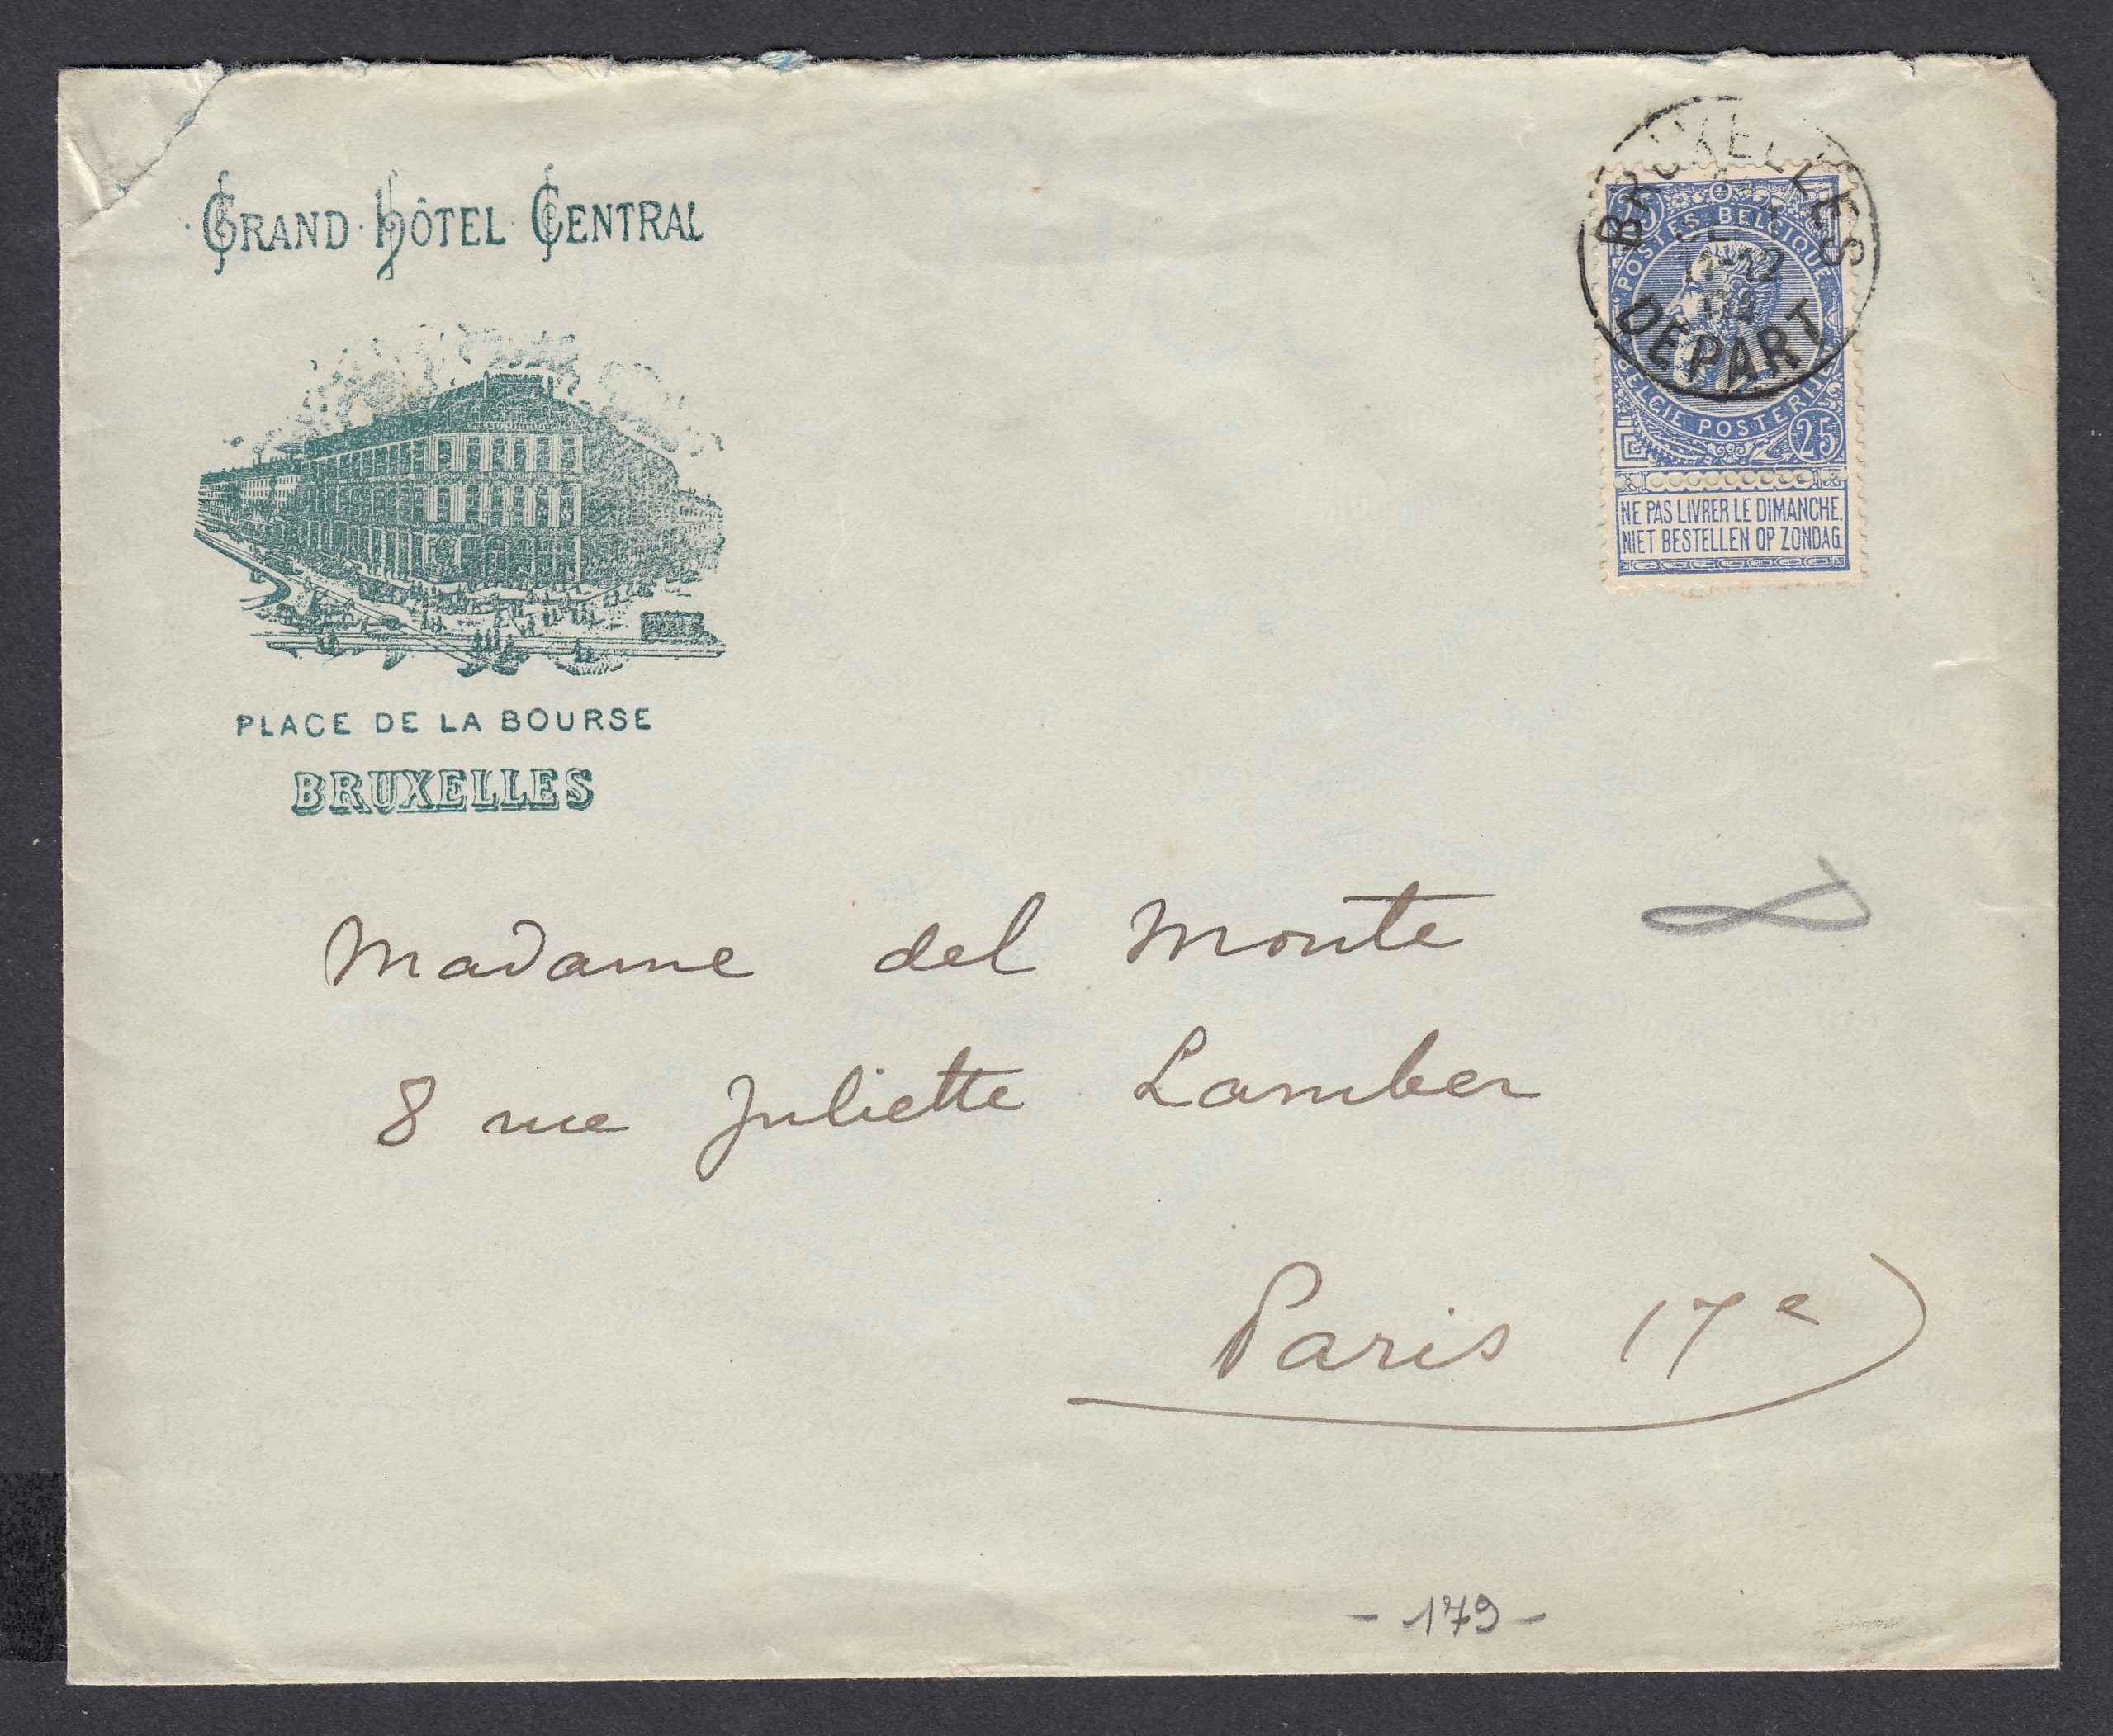 GRAND HÔTEL CENTRAL
PLACE DE LA BOURSE
BRUXELLES
BRUXELLES
11-12
DEPART
25
POSTES BELGIQUE
BELGIE POSTERIJEN
25
NE PAS LIVRER LE DIMANCHE.
NIET BESTELLEN OP ZONDAG.
Madame del Monte
8 rue Juliette Lamber
Paris 17e
- 179 -